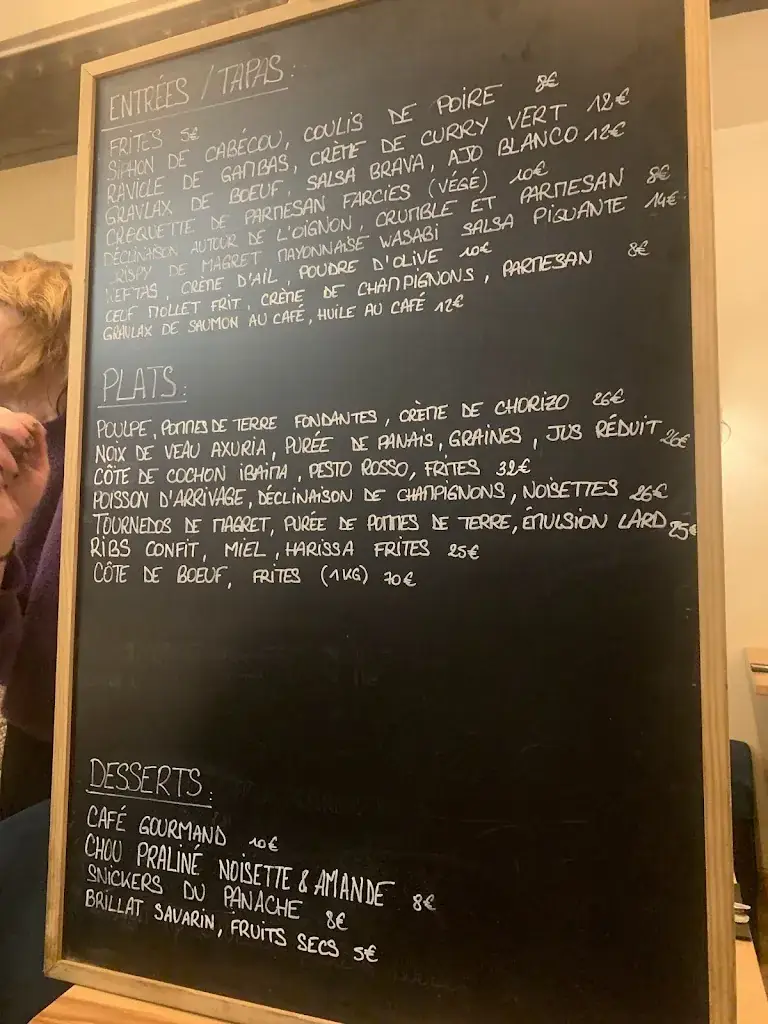 ENTRÉES / TAPAS :
FRITES 5€
SIPHON DE CABÉCOU, COULIS DE POIRE 8€
RAVIOLE DE GAMBAS, CRÈME DE CURRY VERT 12€
GRAVLAX DE BOEUF, SALSA BRAVA, AJO BLANCO 12€
CROQUETTE DE PARMESAN FARCIES (VÉGÉ) 10€
DÉCLINAISON AUTOUR DE L'OIGNON, CRUMBLE ET PARMESAN 8€
CRISPY DE MAGRET MAYONNAISE WASABI SALSA PIQUANTE 14€
KEFTAS, CRÈME D'AIL, POUDRE D'OLIVE 10€
OEUF MOLLET FRIT, CRÈME DE CHAMPIGNONS, PARMESAN 8€
GRAVLAX DE SAUMON AU CAFÉ, HUILE AU CAFÉ 12€
PLATS :
POULPE, POMMES DE TERRE FONDANTES, CRÈME DE CHORIZO 26€
NOIX DE VEAU AXURIA, PURÉE DE PANAIS, GRAINES, JUS RÉDUIT 26€
CÔTE DE COCHON IBAIMA, PESTO ROSSO, FRITES 32€
POISSON D'ARRIVAGE, DÉCLINAISON DE CHAMPIGNONS, NOISETTES 26€
TOURNEDOS DE MAGRET, PURÉE DE POMMES DE TERRE, ÉMULSION LARD 25€
RIBS CONFIT, MIEL, HARISSA FRITES 25€
CÔTE DE BOEUF, FRITES (1KG) 70€
DESSERTS :
CAFÉ GOURMAND 10€
CHOU PRALINÉ NOISETTE & AMANDE 8€
SNICKERS DU PANACHE 8€
BRILLAT SAVARIN, FRUITS SECS 5€